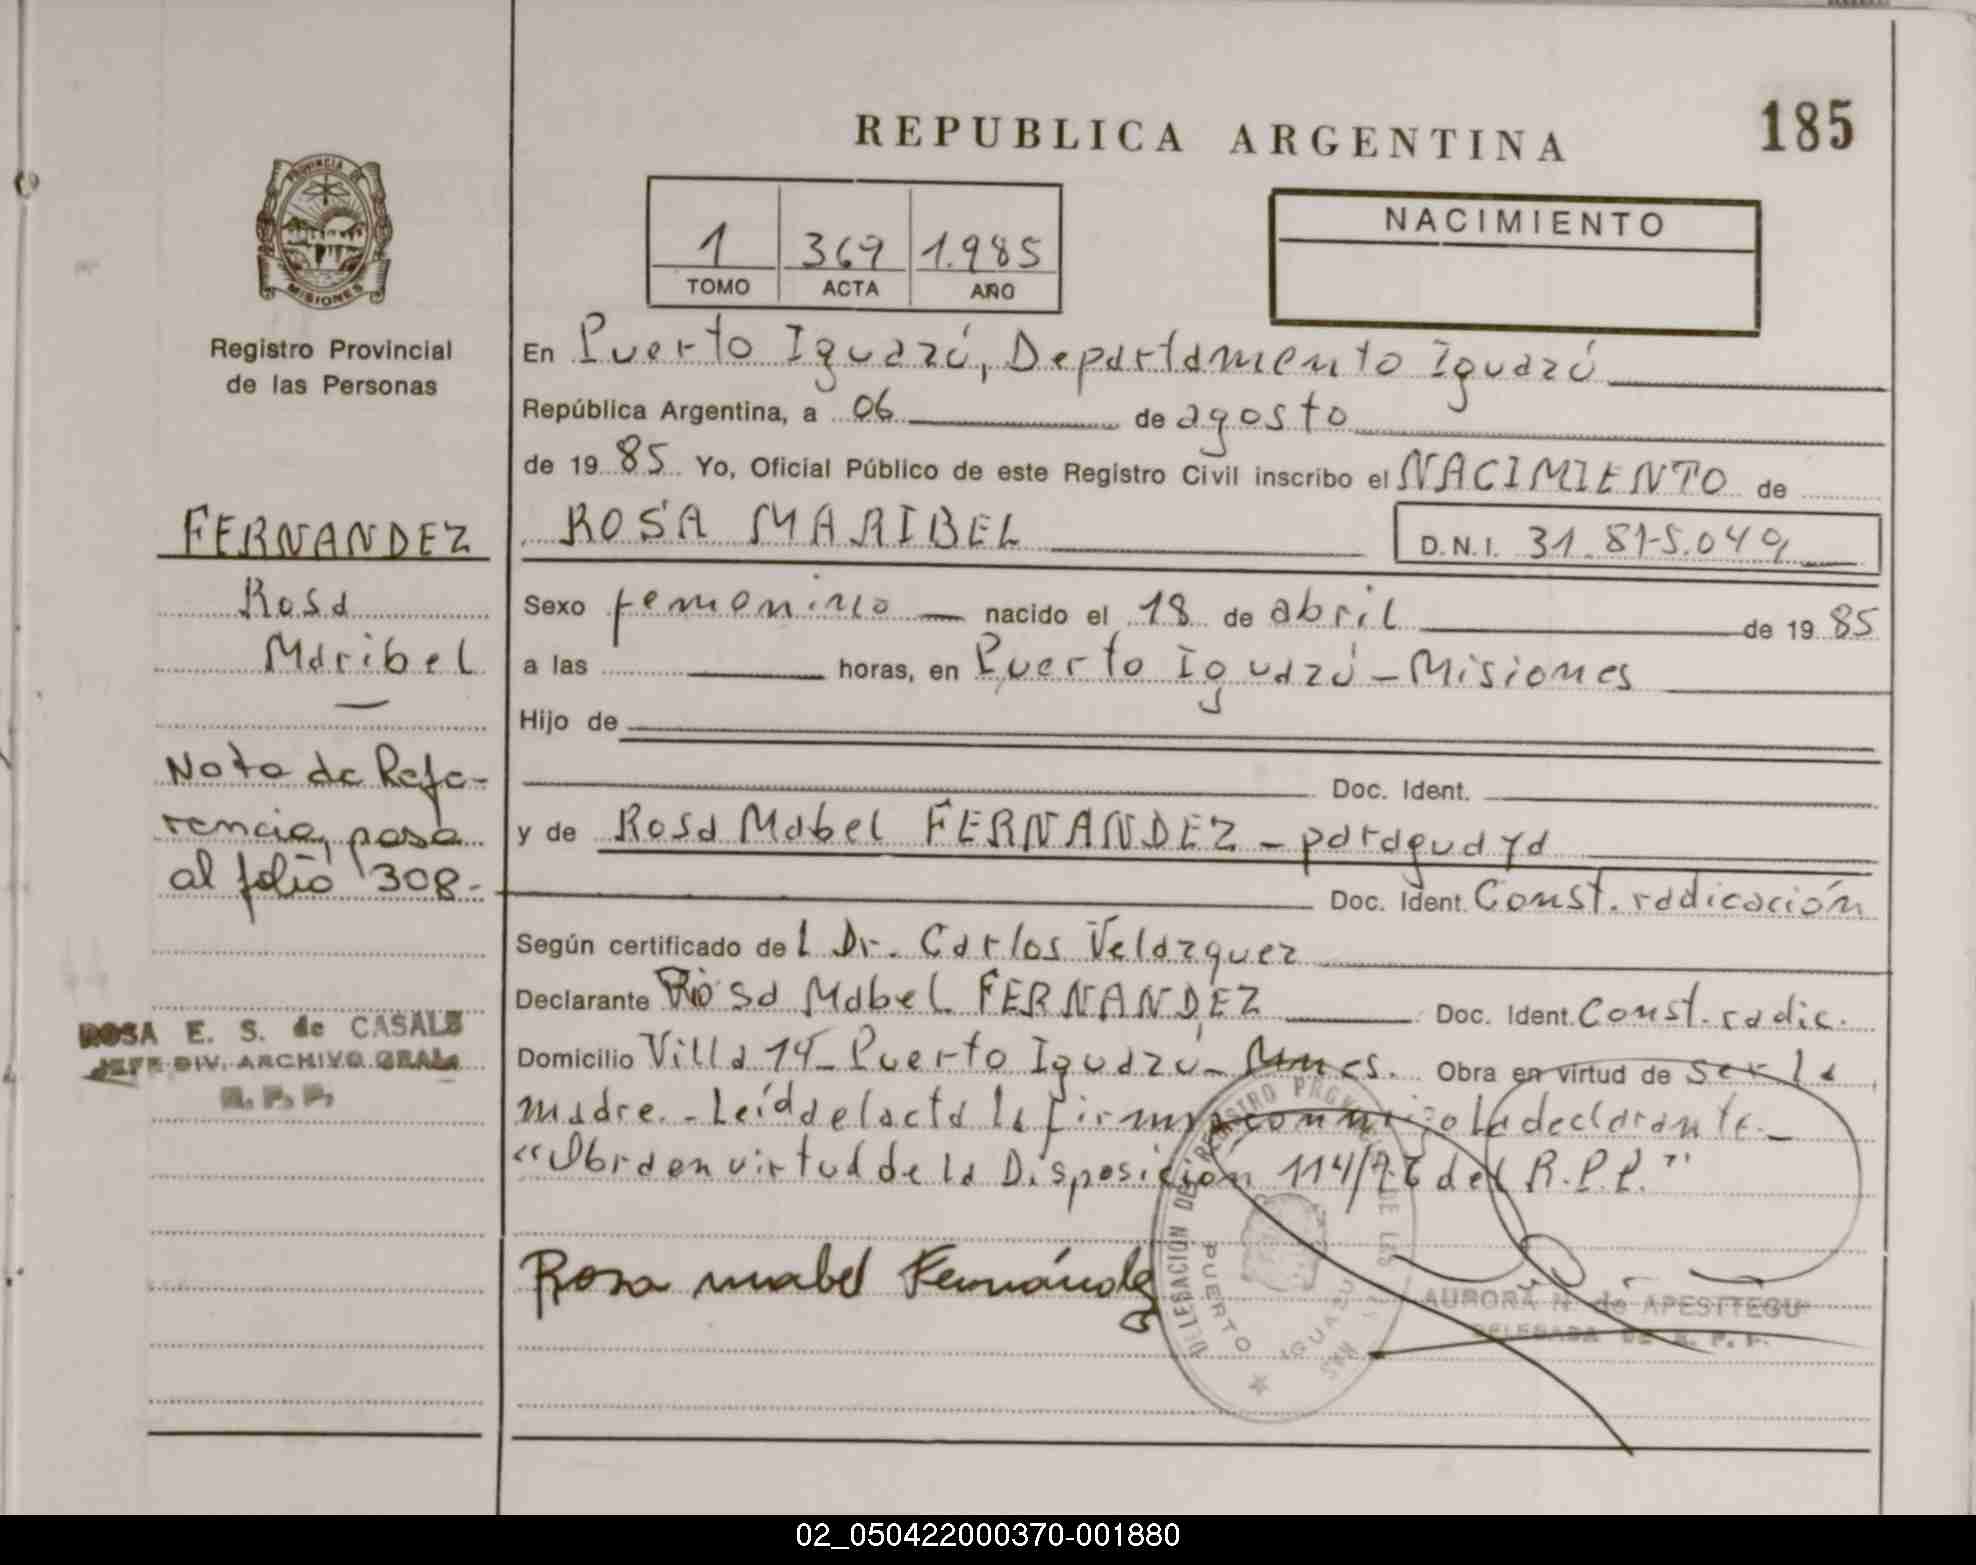 185
REPUBLICA ARGENTINA
PROVINCIA DE
MISIONES
Registro Provincial
de las Personas
1 369 1.985
TOMO ACTA AÑO
NACIMIENTO
En Puerto Iguazú, Departamento Iguazú
República Argentina, a 06 de agosto
de 1985 Yo, Oficial Público de este Registro Civil inscribo el NACIMIENTO de
ROSA MARIBEL
D.N.I. 31.815.049
Sexo femenino nacido el 18 de abril de 1985
a las horas, en Puerto Iguazú - Misiones
Hijo de
Doc. Ident.
y de Rosa Mabel FERNANDEZ - paraguaya
Doc. Ident. Const. radicación
Según certificado del Dr. Carlos Velazquez
Declarante Rosa Mabel FERNANDEZ Doc. Ident. Const. radic.
Domicilio Villa 14 - Puerto Iguazú - Mnes. Obra en virtud de ser la
madre. - Leída el acta la firma conmigo la declarante. -
"Obra en virtud de la Disposición 114/76 del R.P.P."
Rosa mabel Fernández
DELEGACION DEL REGISTRO PROVINCIAL DE LAS
PUERTO IGUAZU
AURORA N. de APESTTEGU
DELEGADA DE R. P. P.
FERNANDEZ
Rosa
Maribel
Nota de Refe-
rencia, pasa
al folio 308.-
ROSA E. S. de CASALS
JEFE DIV. ARCHIVO GRAL.
R. P. P.
02_050422000370-001880